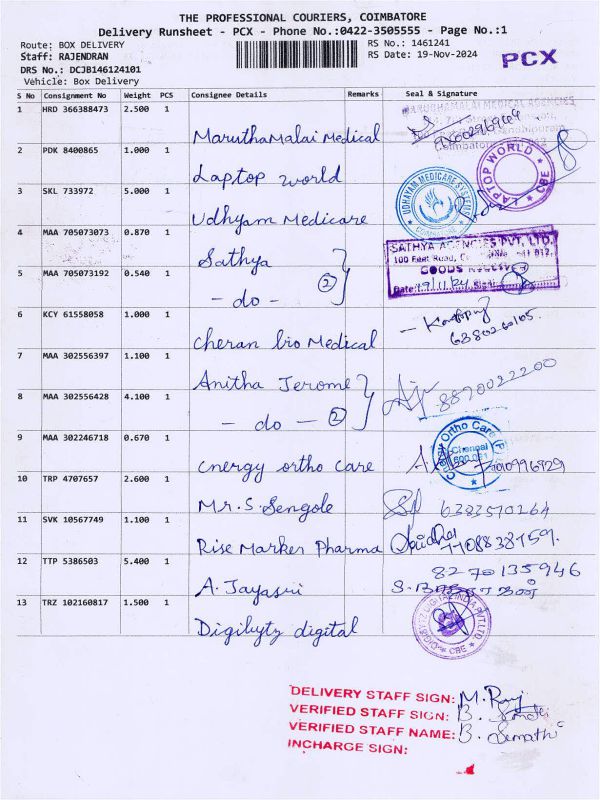 THE PROFESSIONAL COURIERS, COIMBATORE
Delivery Runsheet - PCX - Phone No.:0422-3505555 - Page No.:1
Route: BOX DELIVERY
RS No.: 1461241
Staff: RAJENDRAN
RS Date: 19-Nov-2024
PCX
DRS No.: DCJB146124101
Vehicle: Box Delivery
S No Consignment No Weight PCS Consignee Details Remarks Seal & Signature
1 HRD 366388473 2.500 1 Maruthamalai Medical
MARUDHAMALAI MEDICAL AGENCIES
2 PDK 8400865 1.000 1 Laptop world
LAPTOP WORLD CBE
3 SKL 733972 5.000 1 Udhyam Medicare
UDHAYAM MEDICARE SYSTEMS COIMBATORE
4 MAA 705073073 0.870 1 Sathya
SATHYA AGENCIES PVT. LTD.
100 Feet Road,
GOODS RECEIVED
Date: 19/11/24 Sign:
5 MAA 705073192 0.540 1 - do - 2
6 KCY 61558058 1.000 1 Cheran bio Medical
7 MAA 302556397 1.100 1 Anitha Jerome
8870022200
8 MAA 302556428 4.100 1 - do - 2
9 MAA 302246718 0.670 1 Cnergy ortho care
Ortho Care (P)
Chennai
10 TRP 4707657 2.600 1 Mr. S. Sengole
6383570264
11 SVK 10567749 1.100 1 Rise Marker Pharma
12 TTP 5386503 5.400 1 A. Jayasri
8270135946
13 TRZ 102160817 1.500 1 Digibytz digital
DELIVERY STAFF SIGN: M. Raj
VERIFIED STAFF SIGN: B.
VERIFIED STAFF NAME: B. Sumathi
INCHARGE SIGN: